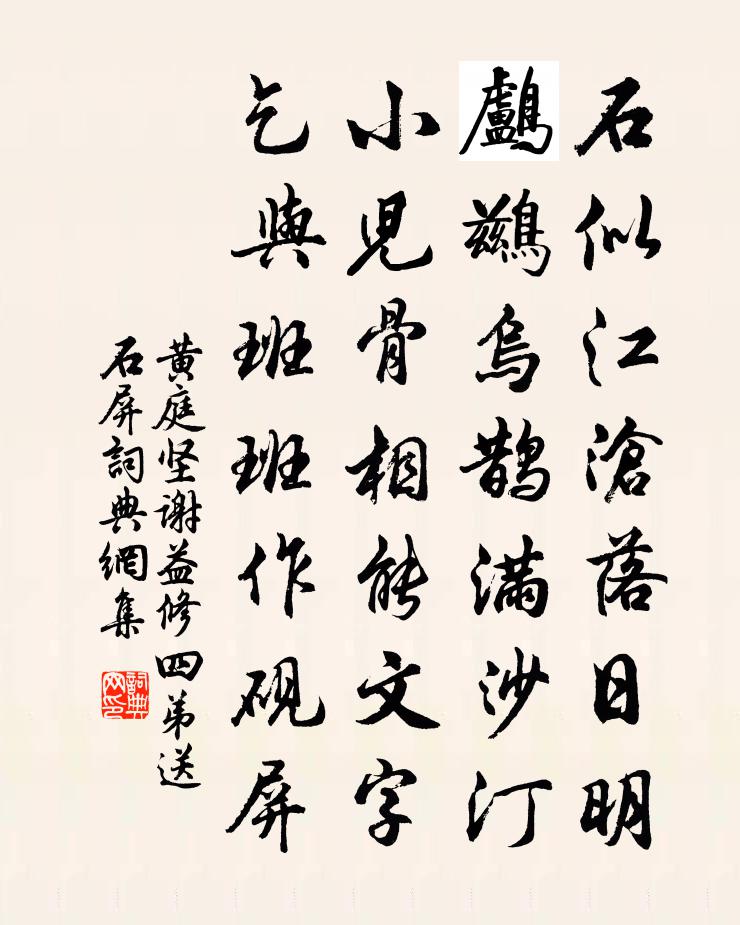 石似江滄落日明
鸕鶿烏鵲滿沙汀
小兒骨相能文字
乞與班班作硯屏
黄庭坚谢益修四弟送
石屏詞典網集
詞典網印